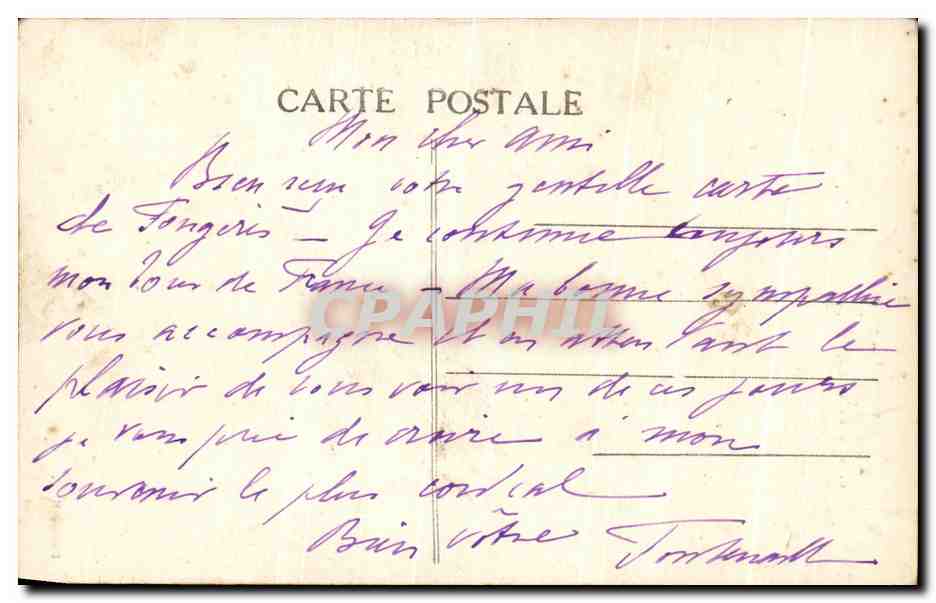 CARTE POSTALE
Mon cher ami
Bien reçu votre gentille carte
de Fougères — Je continue toujours
mon tour de France — Ma bonne sympathie
vous accompagne et en attendant le
plaisir de vous voir un de ces jours
je vous prie de croire à mon
souvenir le plus cordial
Bien vôtre
CPAPHIL